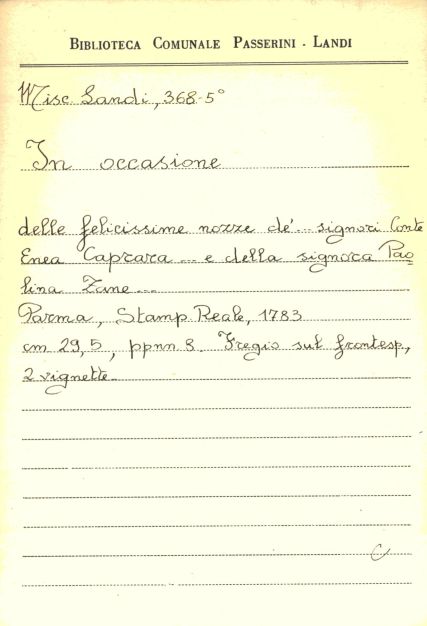 BIBLIOTECA COMUNALE PASSERINI - LANDI
Misc. Landi, 368-5°
In occasione
delle felicissime nozze de'... signori Conte
Enea Caprara ... e della signora Pao
lina Zane...
Parma, Stamp. Reale, 1783
cm 29,5, ppnn 8. Fregio sul frontesp.,
2 vignette.
C